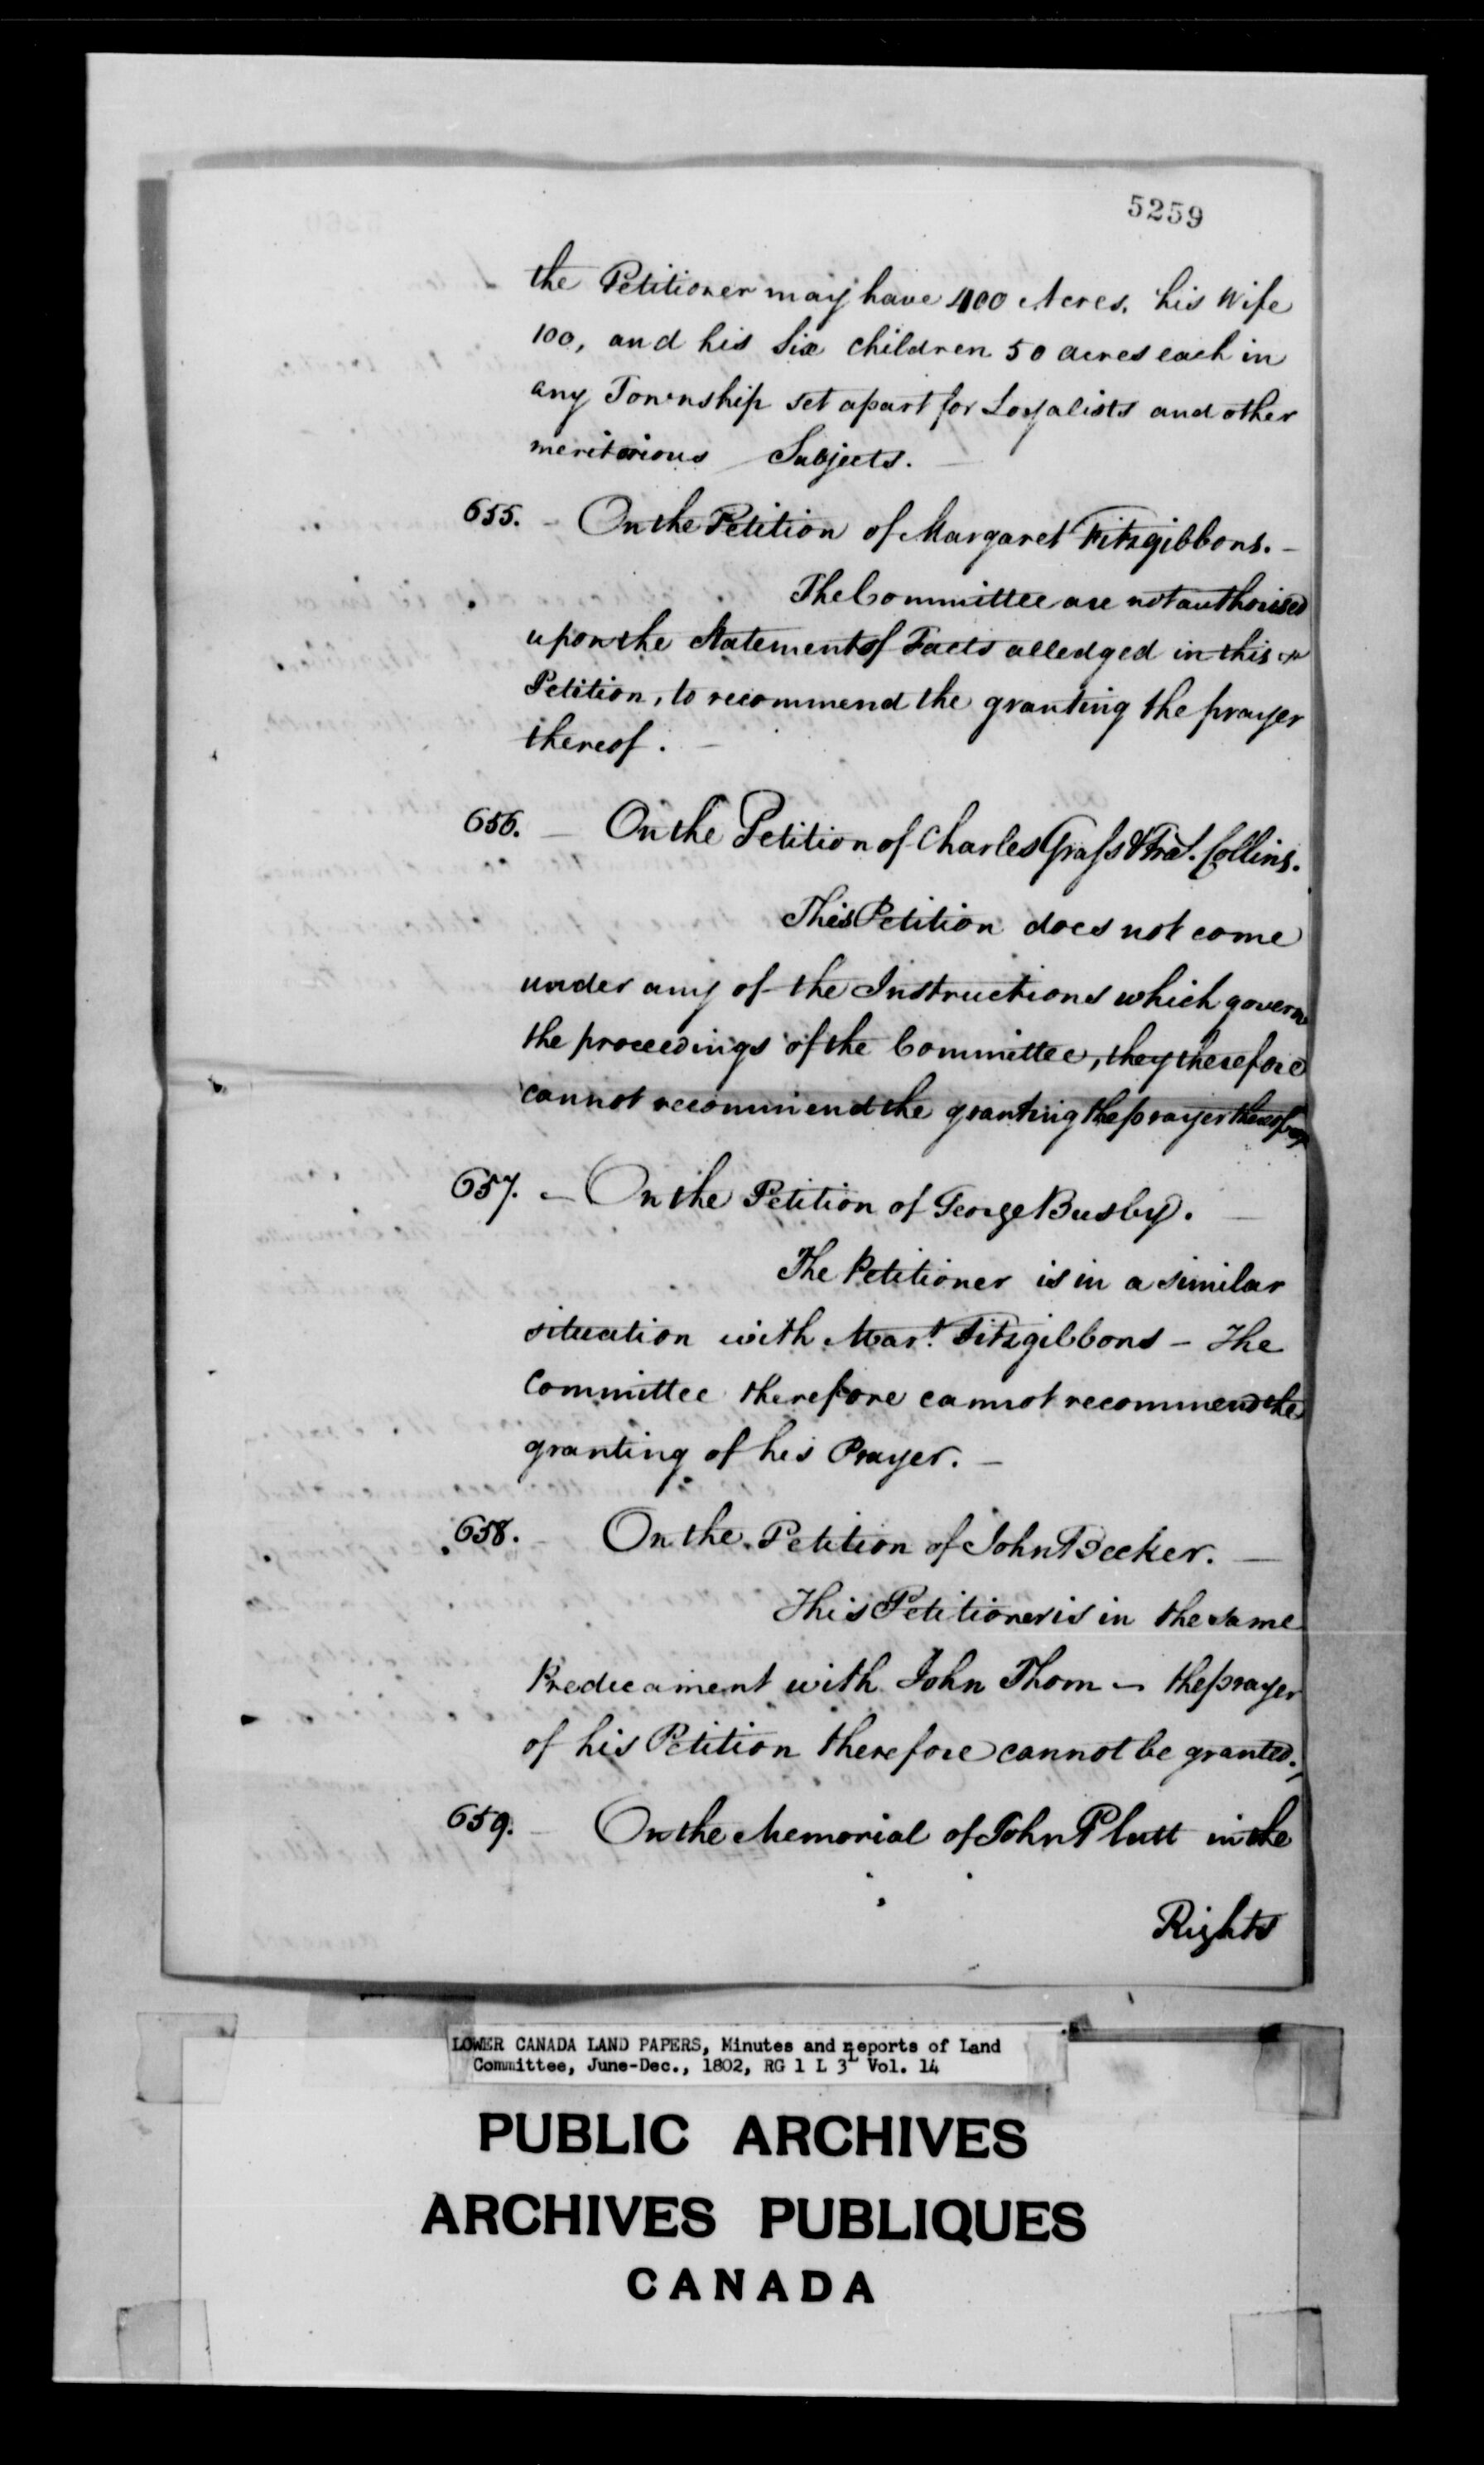 5259
the Petitioner may have 400 Acres. his Wife
100, and his Six Children 50 acres each in
any Township set apart for Loyalists and other
meritorious Subjects. —
655. — On the Petition of Margaret Fitzgibbons. —
The Committee are not authorised
upon the Statement of Facts alledged in this
Petition, to recommend the granting the prayer
thereof. —
656. — On the Petition of Charles Grass & Fra. Collins.
This Petition does not come
under any of the Instructions which govern
the proceedings of the Committee, they therefore
cannot recommend the granting the prayer thereof
657. — On the Petition of George Busby. —
The Petitioner is in a similar
situation with Mart. Fitzgibbons — The
Committee therefore cannot recommend the
granting of his Prayer. —
658. — On the Petition of John Becker. —
This Petitioner is in the same
Predicament with John Thom — the prayer
of his Petition therefore cannot be granted.
659. — On the Memorial of John Platt in the
Rights
LOWER CANADA LAND PAPERS, Minutes and Reports of Land
Committee, June-Dec., 1802, RG 1 L 3L Vol. 14
PUBLIC ARCHIVES
ARCHIVES PUBLIQUES
CANADA